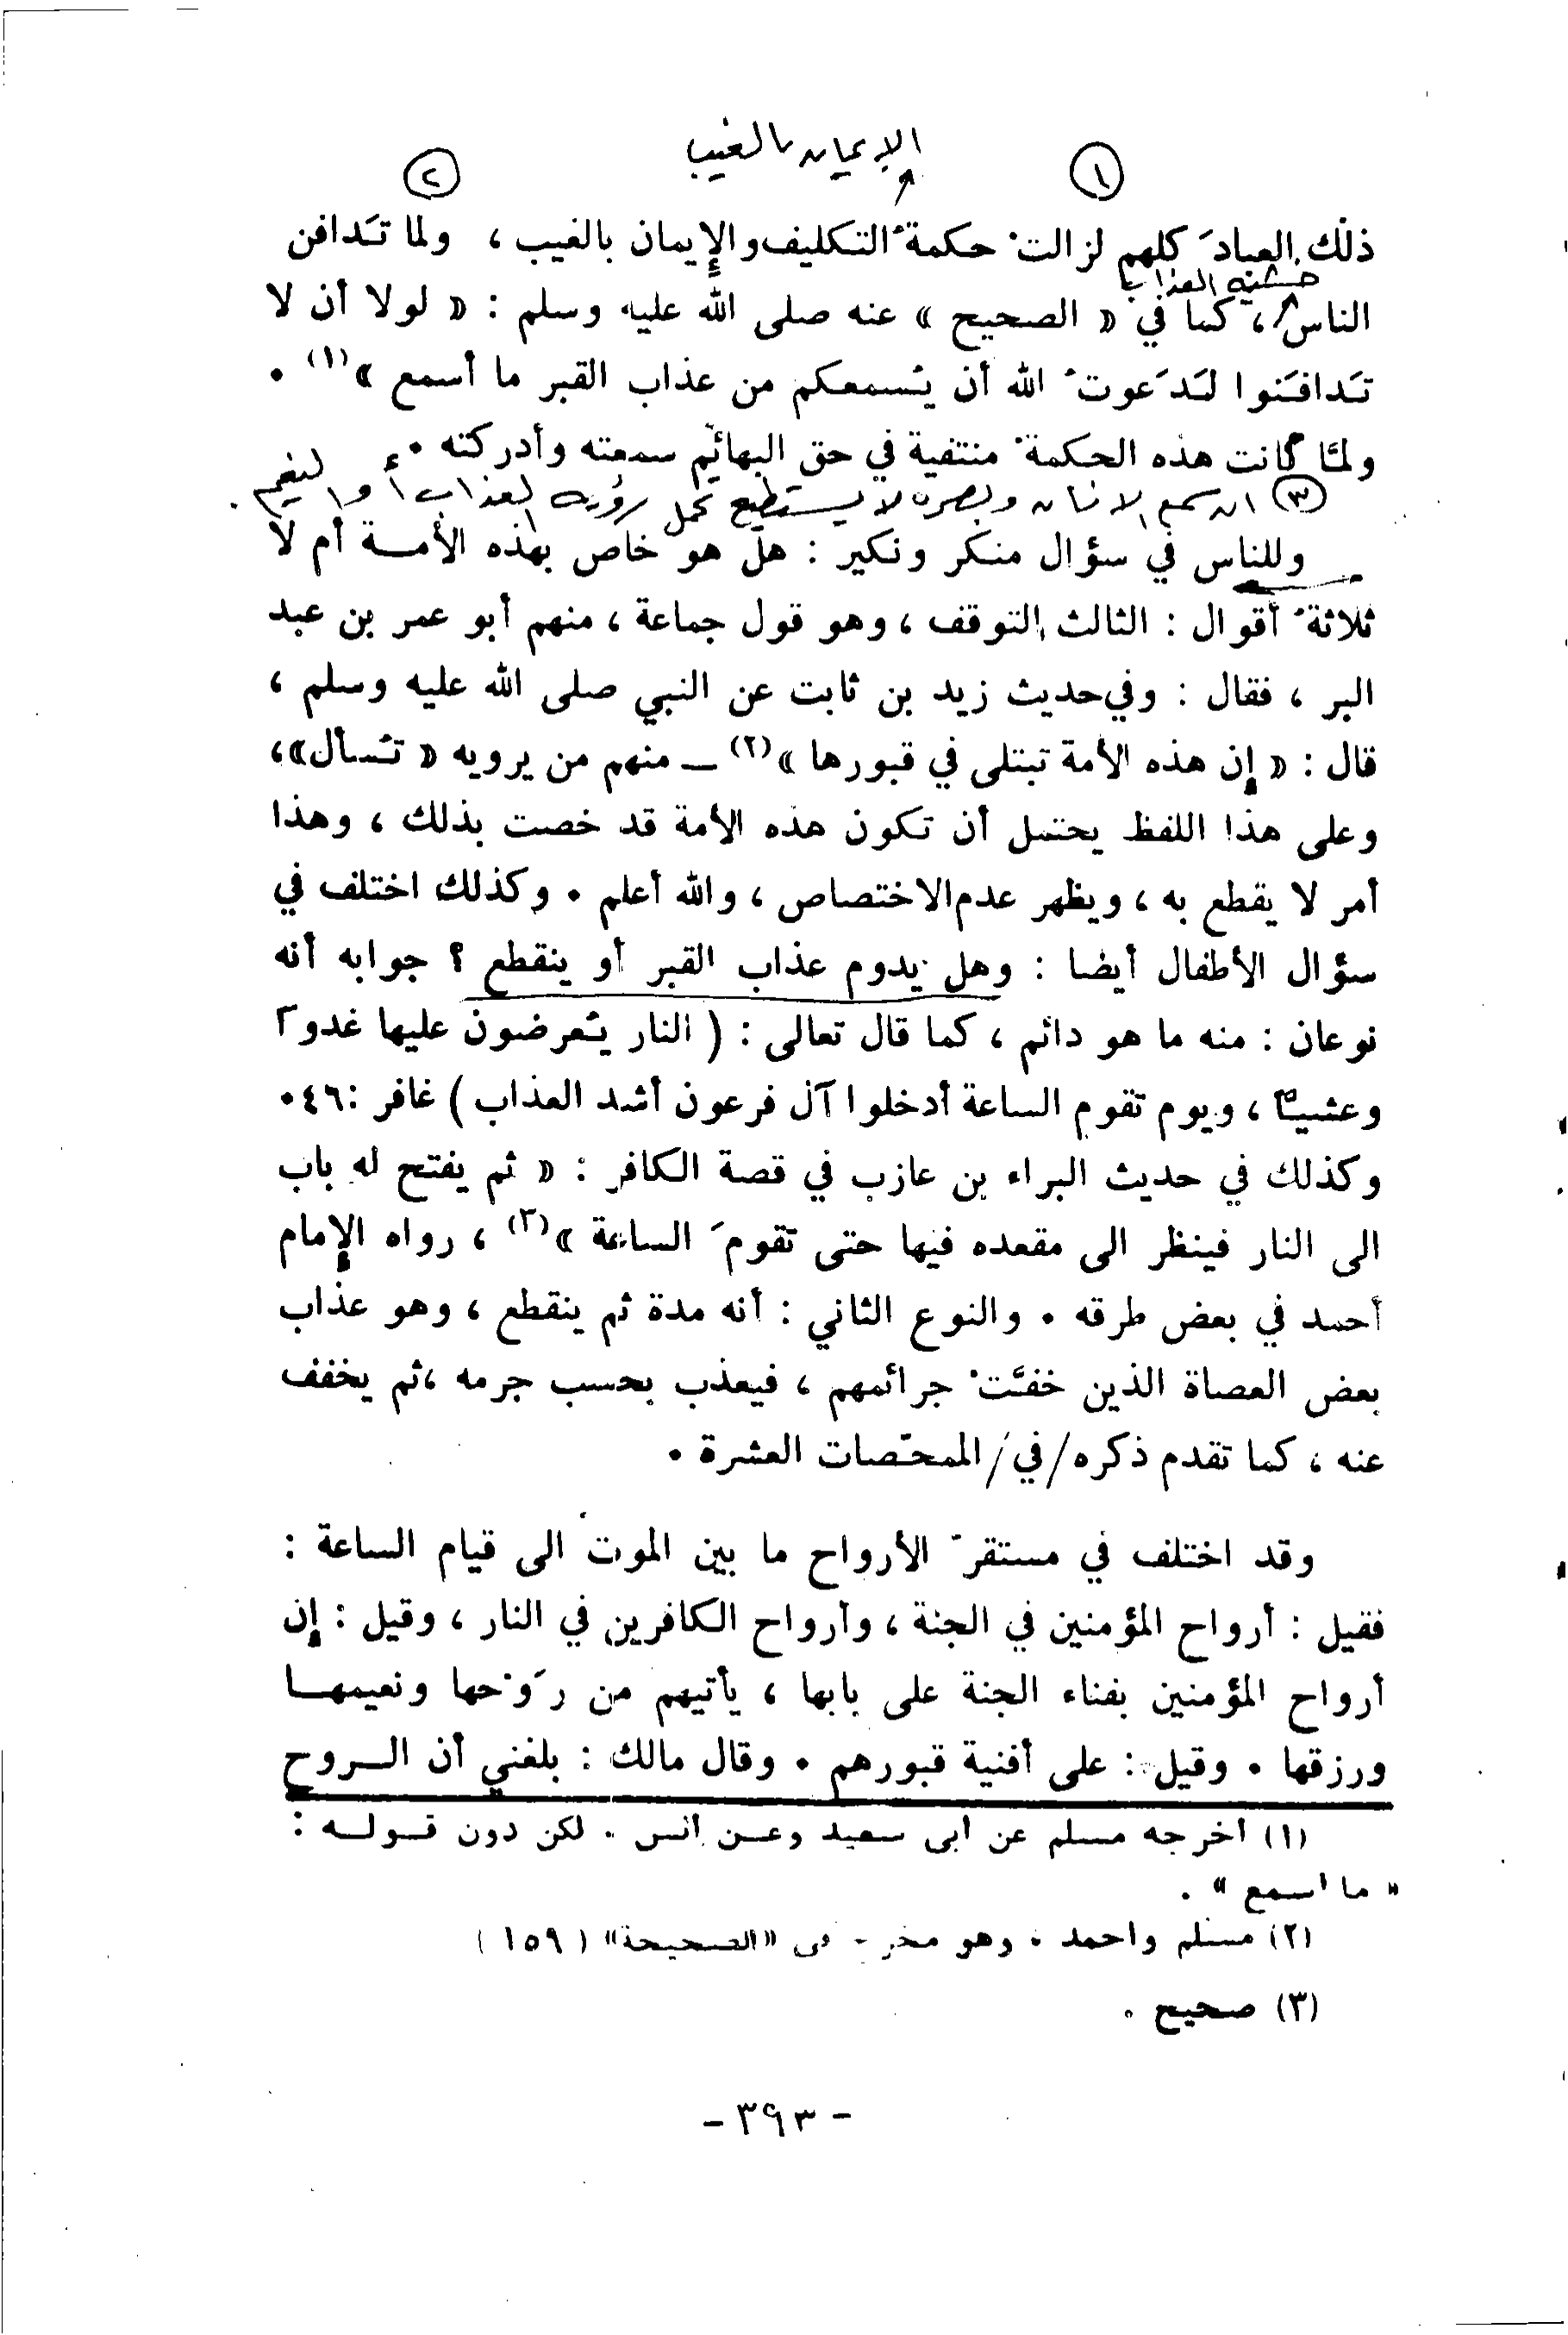 ١ الإيمان بالغيب ٢
ذلك العبادَ كلهم لزالتْ حكمةُ التكليف والإيمان بالغيب ، ولما تَدافن
خشية العذاب
الناس ، كما في « الصحيح » عنه صلى الله عليه وسلم : « لولا أن لا
تَدافَنوا لدَعوتُ الله أن يُسمعكم من عذاب القبر ما أسمع »(١) .
ولمّا كانت هذه الحكمةُ منتفية في حق البهائم سمعته وأدركته .
٣ ان سمع الانسان وبصره لا يستطيع تحمل رؤية العذاب أو النعيم .
وللناس في سؤال منكر ونكير : هل هو خاص بهذه الأمـة أم لا
ثلاثةُ أقوال : الثالث التوقف ، وهو قول جماعة ، منهم أبو عمر بن عبد
البر ، فقال : وفي حديث زيد بن ثابت عن النبي صلى الله عليه وسلم ،
قال : « إن هذه الأمة تبتلى في قبورها »(٢) – منهم من يرويه « تُسأل»،
وعلى هذا اللفظ يحتمل أن تكون هذه الأمة قد خصت بذلك ، وهذا
أمر لا يقطع به ، ويظهر عدم الاختصاص ، والله أعلم . وكذلك اختلف في
سؤال الأطفال أيضا : وهل يدوم عذاب القبر أو ينقطع ؟ جوابه أنه
نوعان : منه ما هو دائم ، كما قال تعالى : ( النار يُعرضون عليها غدواً
وعشياً ، ويوم تقوم الساعة أدخلوا آل فرعون أشد العذاب ) غافر :٤٦.
وكذلك في حديث البراء بن عازب في قصة الكافر : « ثم يفتح له باب
الى النار فينظر الى مقعده فيها حتى تقومَ الساعة »(٣) ، رواه الإمام
أحمد في بعض طرقه . والنوع الثاني : أنه مدة ثم ينقطع ، وهو عذاب
بعض العصاة الذين خفّتْ جرائمهم ، فيعذب بحسب جرمه ،ثم يخفف
عنه ، كما تقدم ذكره/في/الممحّصات العشرة .
وقد اختلف في مستقرّ الأرواح ما بين الموت الى قيام الساعة :
فقيل : أرواح المؤمنين في الجنة ، وأرواح الكافرين في النار ، وقيل : إن
أرواح المؤمنين بفناء الجنة على بابها ، يأتيهم من رَوْحها ونعيمهـا
ورزقها . وقيل : على أفنية قبورهم . وقال مالك : بلغني أن الـروح
(١) أخرجه مسلم عن أبي سعيد وعـن أنس . لكن دون قـولـه :
« ما اسمع » .
(٢) مسلم واحمد ، وهو مخرج في «الصحيحة» (١٥٩)
(٣) صحيح .
– ٣٩٣ –